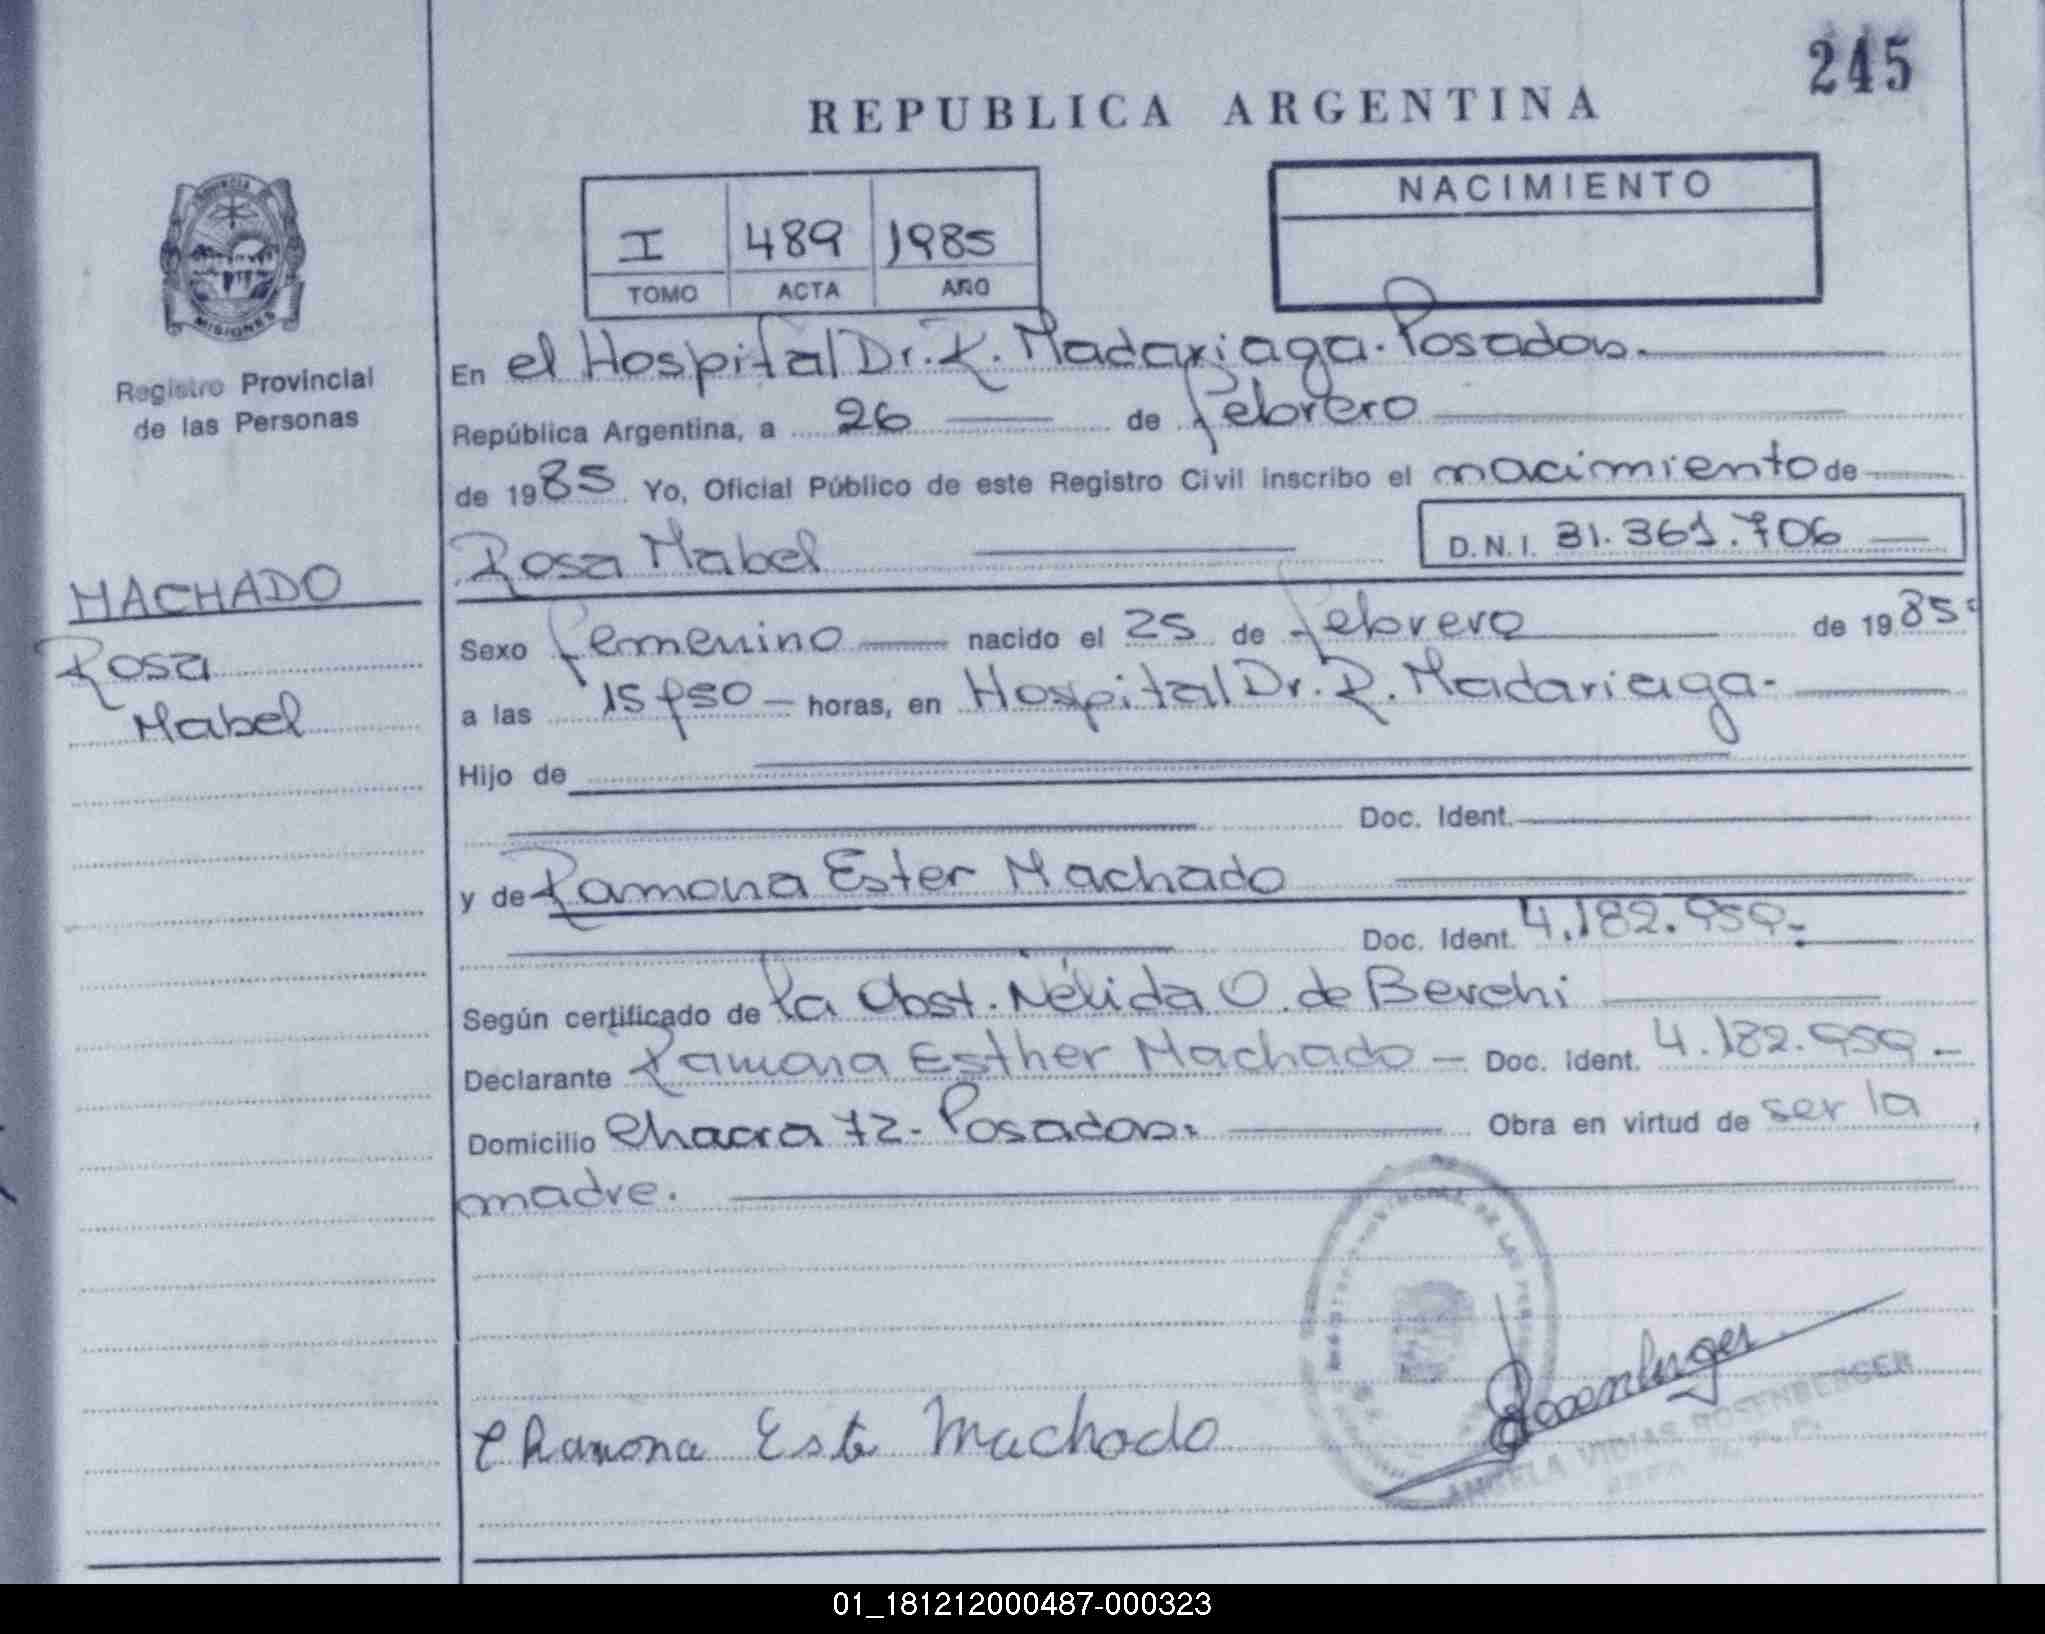 245
REPUBLICA ARGENTINA
I 489 1985
TOMO ACTA AÑO
NACIMIENTO
PROVINCIA
MISIONES
Registro Provincial
de las Personas
MACHADO
Rosa
Mabel
En el Hospital Dr. R. Madariaga. Posadas.
República Argentina, a 26 de febrero
de 1985 Yo, Oficial Público de este Registro Civil inscribo el nacimiento de
Rosa Mabel D.N.I. 31.361.706
Sexo femenino nacido el 25 de febrero de 1985.
a las 15 y 50 horas, en Hospital Dr. R. Madariaga.
Hijo de
Doc. Ident.
y de Ramona Ester Machado
Doc. Ident. 4.182.959.
Según certificado de la Obst. Nélida O. de Berchi
Declarante Ramona Esther Machado Doc. Ident. 4.182.959
Domicilio Chacra 72. Posadas. Obra en virtud de ser la
madre.
Ramona Este Machado
ANGELA VIDIAS ROSENBERGER
01_181212000487-000323